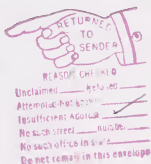 RETURNED
TO
SENDER
REASON CHECKED
Unclaimed Refused
Attempted-Not known
Insufficient Address
No such street number
No such office in state
Do not remail in this envelope